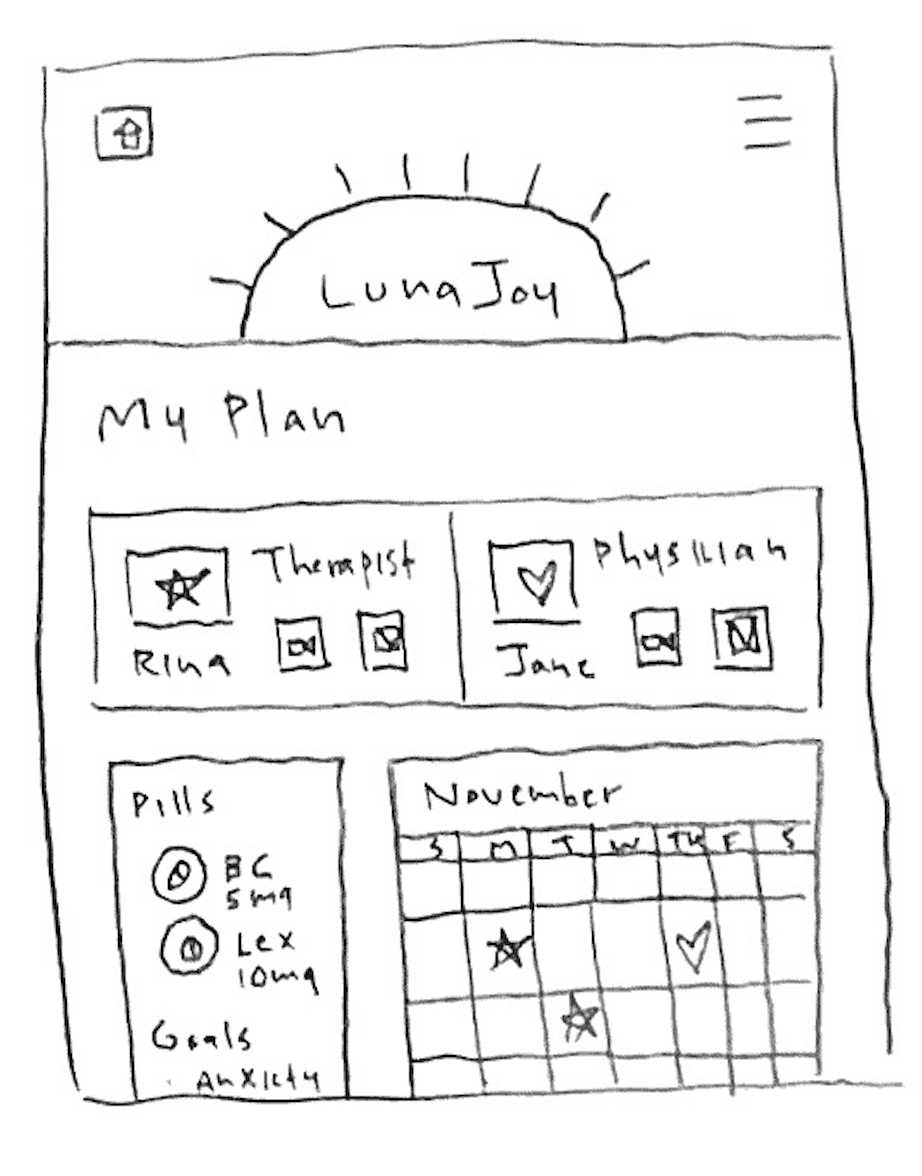 Luna Joy
My Plan
Therapist
Rina
Physician
Jane
Pills
BC
5mg
Lex
10mg
Goals
· Anxiety
November
S M T W TH F S